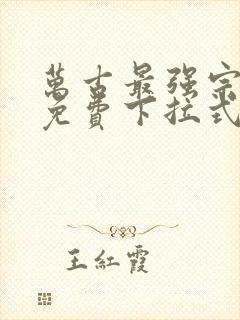 萬古最强宗
免費下拉式
王紅霞